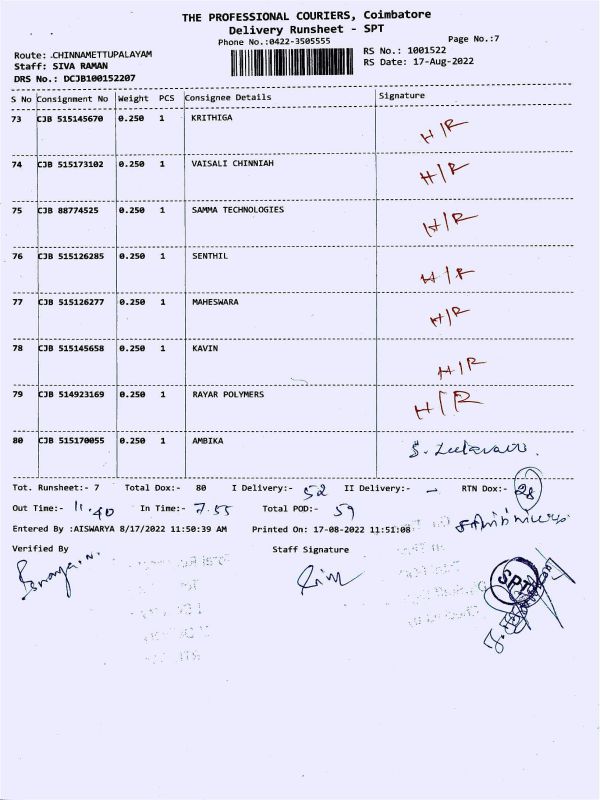 THE PROFESSIONAL COURIERS, Coimbatore
Delivery Runsheet - SPT
Phone No.:0422-3505555
Page No.:7
Route: .CHINNAMETTUPALAYAM
RS No.: 1001522
Staff: SIVA RAMAN
RS Date: 17-Aug-2022
DRS No.: DCJB100152207
S No Consignment No Weight PCS Consignee Details Signature
73 CJB 515145670 0.250 1 KRITHIGA H/R
74 CJB 515173102 0.250 1 VAISALI CHINNIAH H/R
75 CJB 88774525 0.250 1 SAMMA TECHNOLOGIES H/R
76 CJB 515126285 0.250 1 SENTHIL H/R
77 CJB 515126277 0.250 1 MAHESWARA H/R
78 CJB 515145658 0.250 1 KAVIN H/R
79 CJB 514923169 0.250 1 RAYAR POLYMERS H/R
80 CJB 515170055 0.250 1 AMBIKA
Tot. Runsheet:- 7 Total Dox:- 80 I Delivery:- 52 II Delivery:- - RTN Dox:- 28
Out Time:- 11.40 In Time:- 7.55 Total POD:- 59
Entered By :AISWARYA 8/17/2022 11:50:39 AM Printed On: 17-08-2022 11:51:08
Verified By Staff Signature
SPT